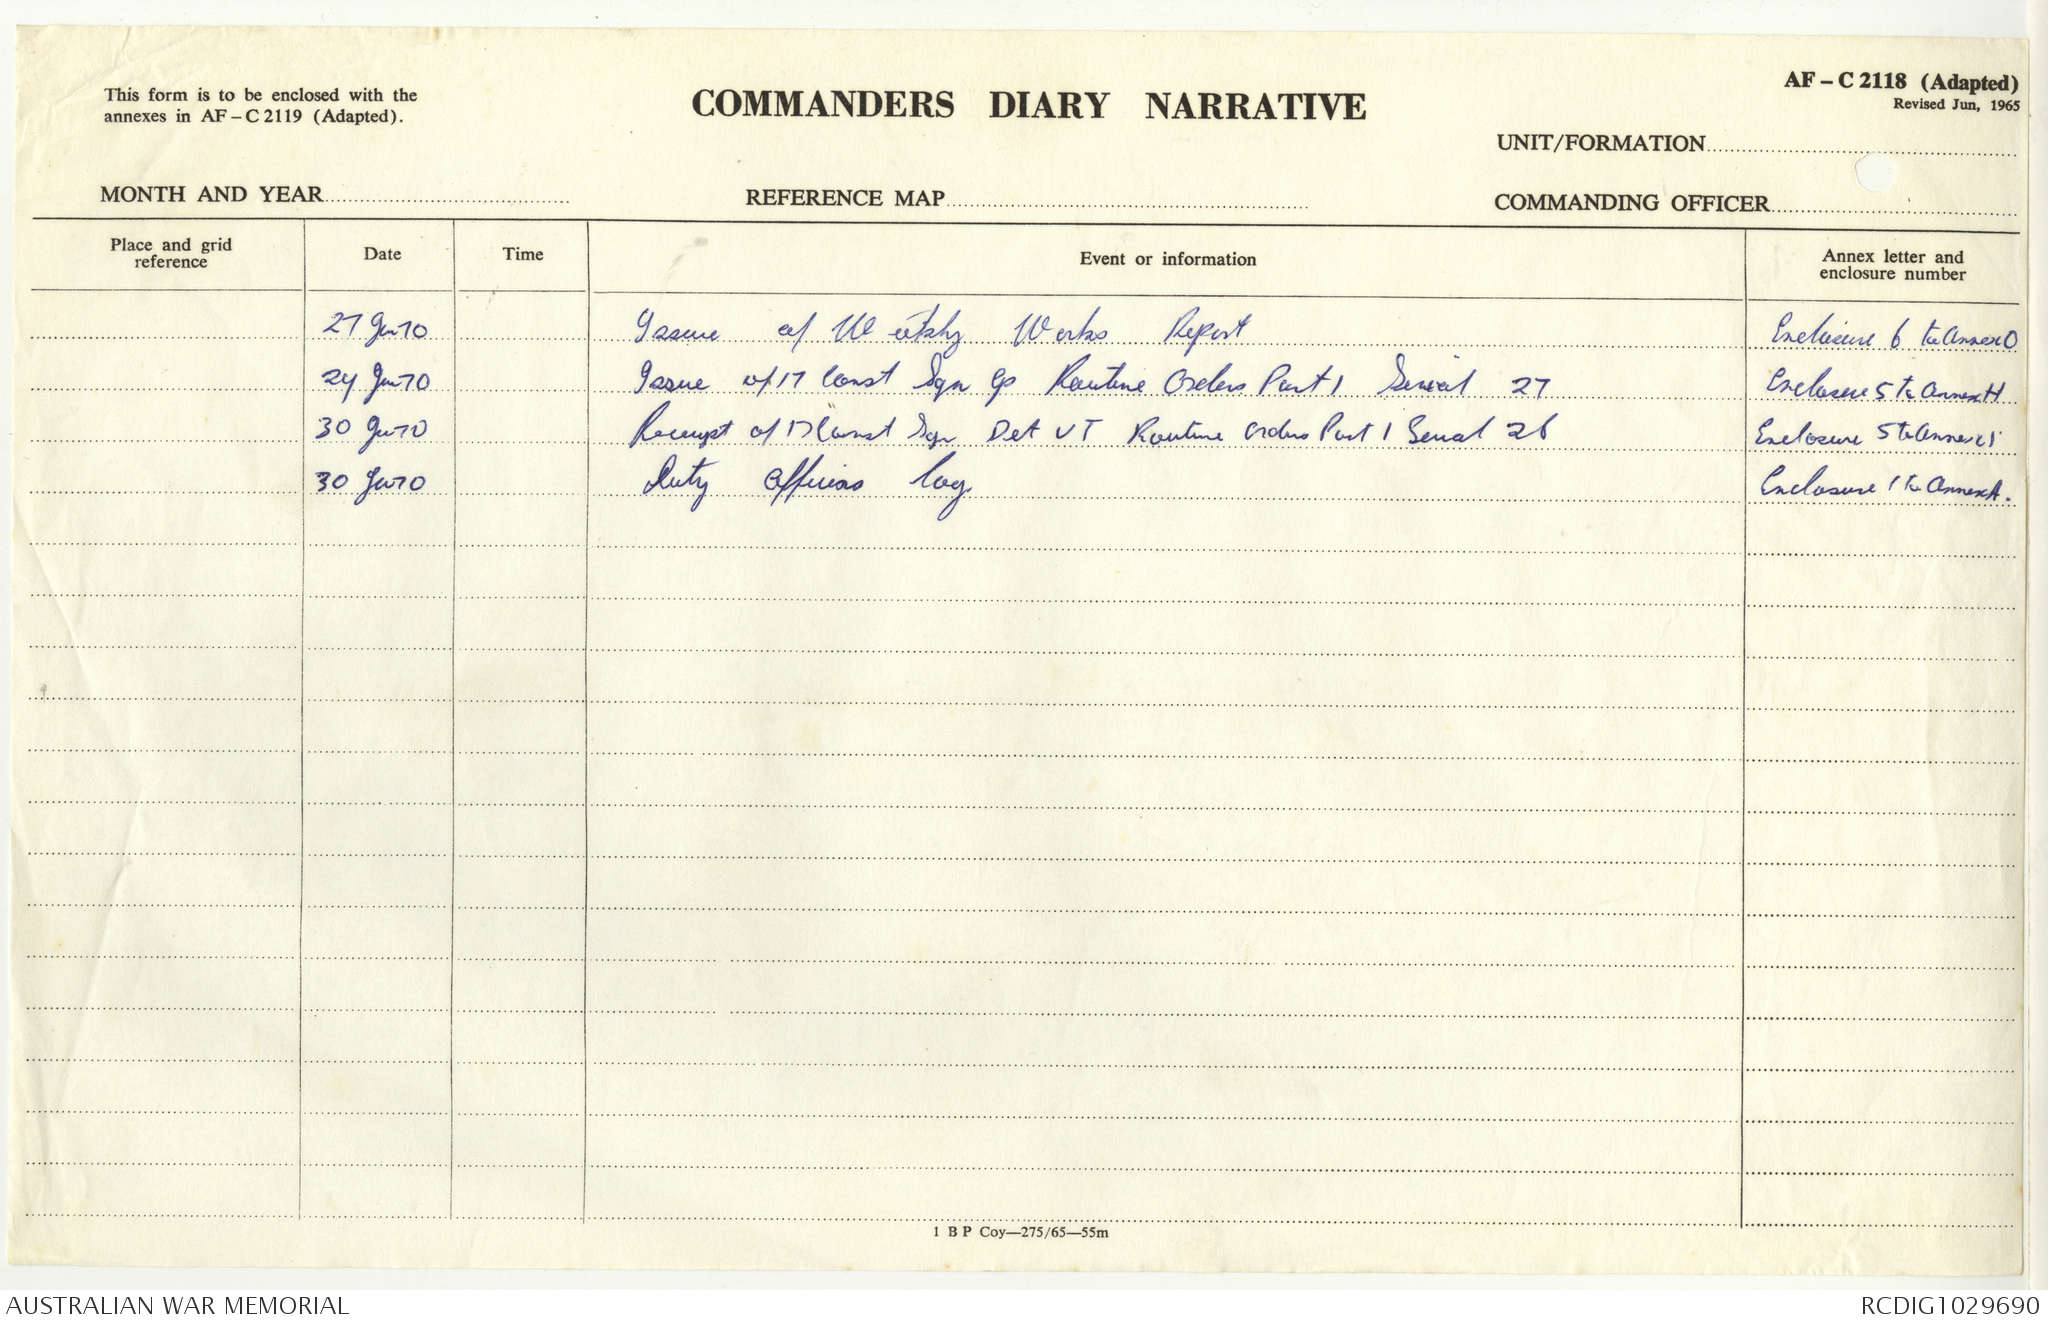 This form is to be enclosed with the
annexes in AF – C 2119 (Adapted).
COMMANDERS DIARY NARRATIVE
AF – C 2118 (Adapted)
Revised Jun, 1965
UNIT/FORMATION
MONTH AND YEAR
REFERENCE MAP
COMMANDING OFFICER
Place and grid reference Date Time Event or information Annex letter and enclosure number
27 Jun 70 Issue of Weekly Works Report Enclosure 6 to Annex O
Jun 70 Issue of 17 Const Sqn Gp Routine Orders Part 1 Serial 27 Enclosure 5 to Annex H
30 Jun 70 Receipt of 17 Const Sqn Det VT Routine Orders Part 1 Serial 26 Enclosure 5 to Annex
30 Jun 70 Duty Officers log Enclosure 1 to Annex A.
1 B P Coy—275/65—55m
AUSTRALIAN WAR MEMORIAL
RCDIG1029690